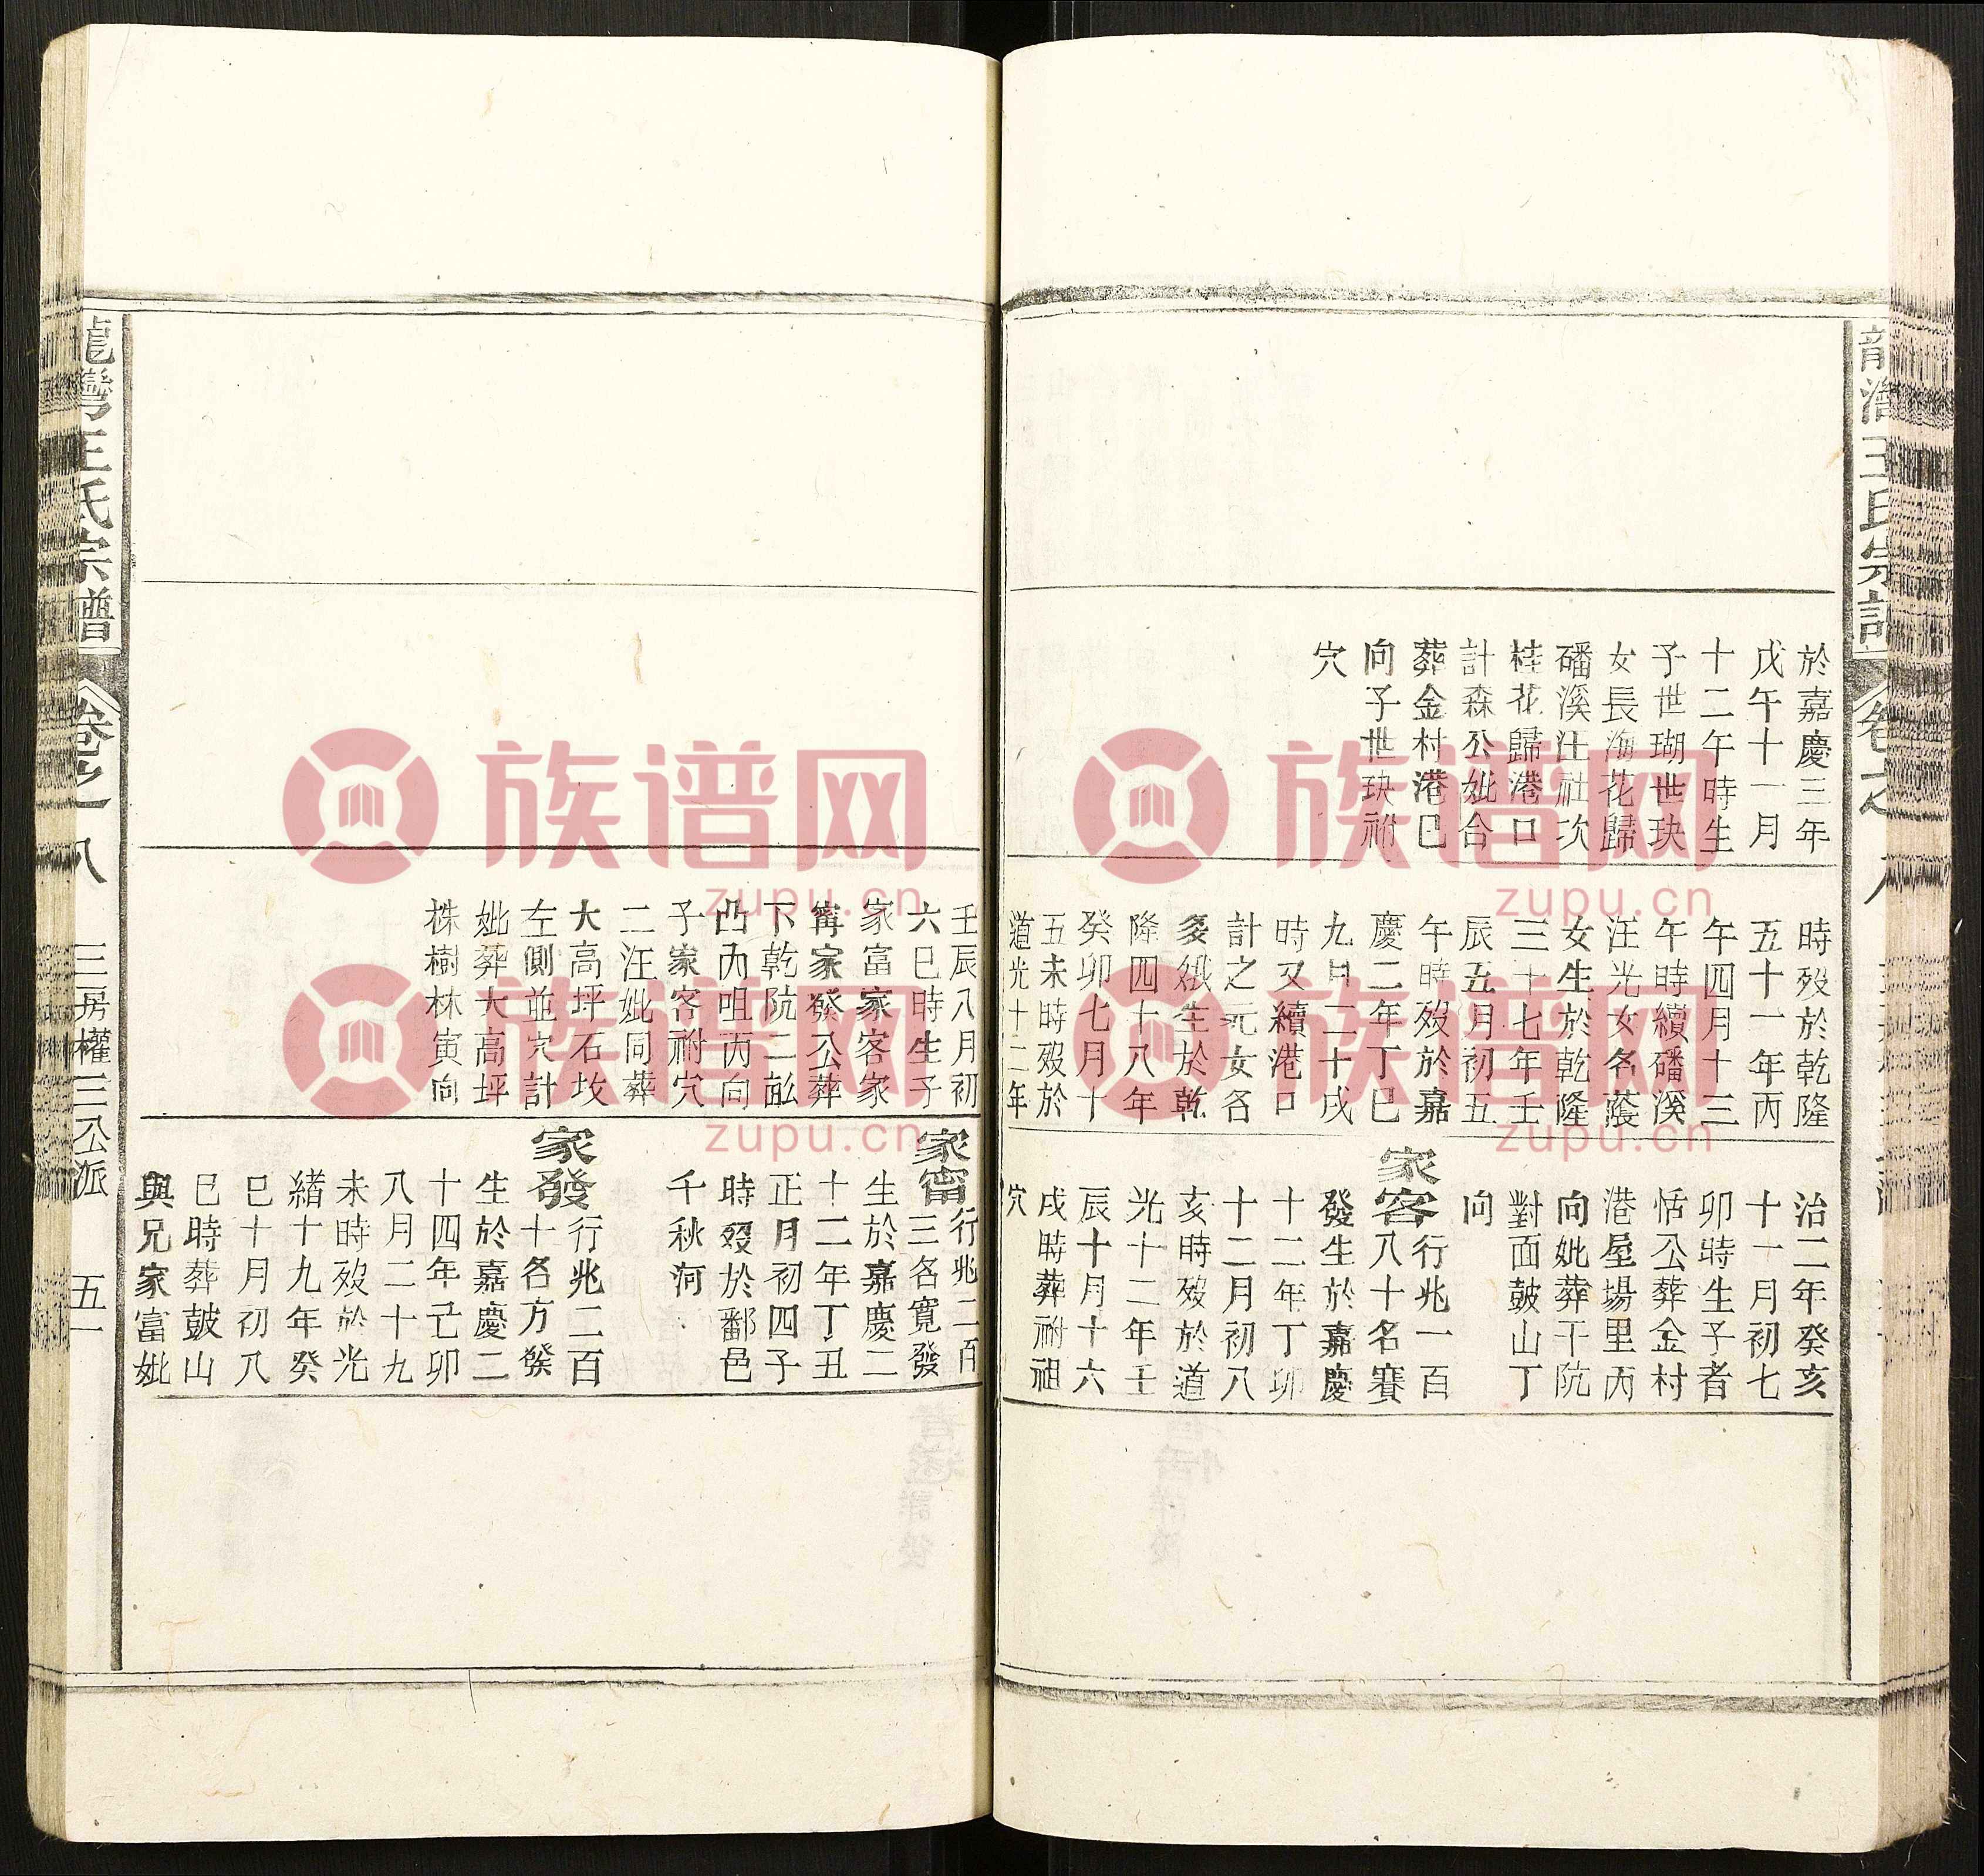 於嘉慶三年
戊午十一月
十二午時生
子世瑚世玦
女長海花歸
磻溪汪社次
桂花歸港口
計森公妣合
葬金村港巳
向子世玦祔
穴
時歿於乾隆
五十一年丙
午四月十三
午時續磻溪
汪光女名蕿
女生於乾隆
三十七年壬
辰五月初五
午時歿於嘉
慶二年丁巳
九月二十戌
時又續港口
計之元女名
多娥生於乾
隆四十八年
癸卯七月十
五未時歿於
道光十二年
治二年癸亥
十一月初七
卯時生子者
恬公葬金村
港屋場里丙
向妣葬干阬
對面皷山丁
向
家客行兆一百
八十名賽
發生於嘉慶
十二年丁卯
十二月初八
亥時歿於道
光十二年壬
辰十月十六
戌時葬祔祖
穴
壬辰八月初
六巳時生子
家富家客家
甯家發公葬
下乾阬二畝
凸內咀丙向
子家客祔穴
二汪妣同葬
大高坪石坟
左側並穴計
妣葬大高坪
株樹林寅向
家甯行兆二百
三名寬發
生於嘉慶二
十二年丁丑
正月初四子
時歿於鄱邑
千秋河
家發行兆二百
十名方發
生於嘉慶二
十四年己卯
八月二十九
未時歿於光
緒十九年癸
巳十月初八
巳時葬皷山
與兄家富妣
龍灣王氏宗譜
卷之一
八
三房權三公派
五一
族谱网
zupu.cn
族谱网
zupu.cn
族谱网
zupu.cn
族谱网
zupu.cn